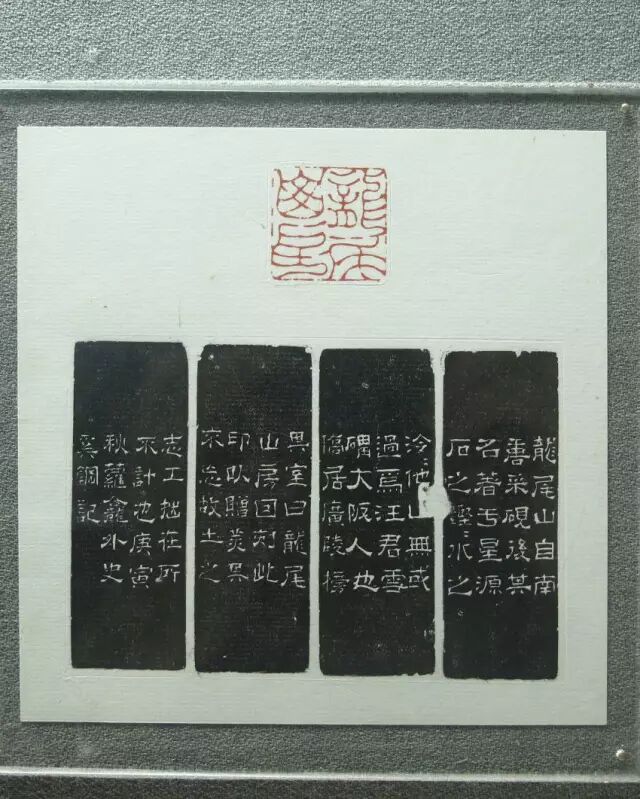 龍尾山自南
唐采硯後其
名著于星源
石之堅水之
冷他山無或
過焉汪君雪
礓大阪人也
僑居廣陵榜
其室曰龍尾
山房因刻此
印以贈蓋冀其
不忘故土之
志工拙在所
不計也庚寅
秋蘿龕外史
奚鋼記